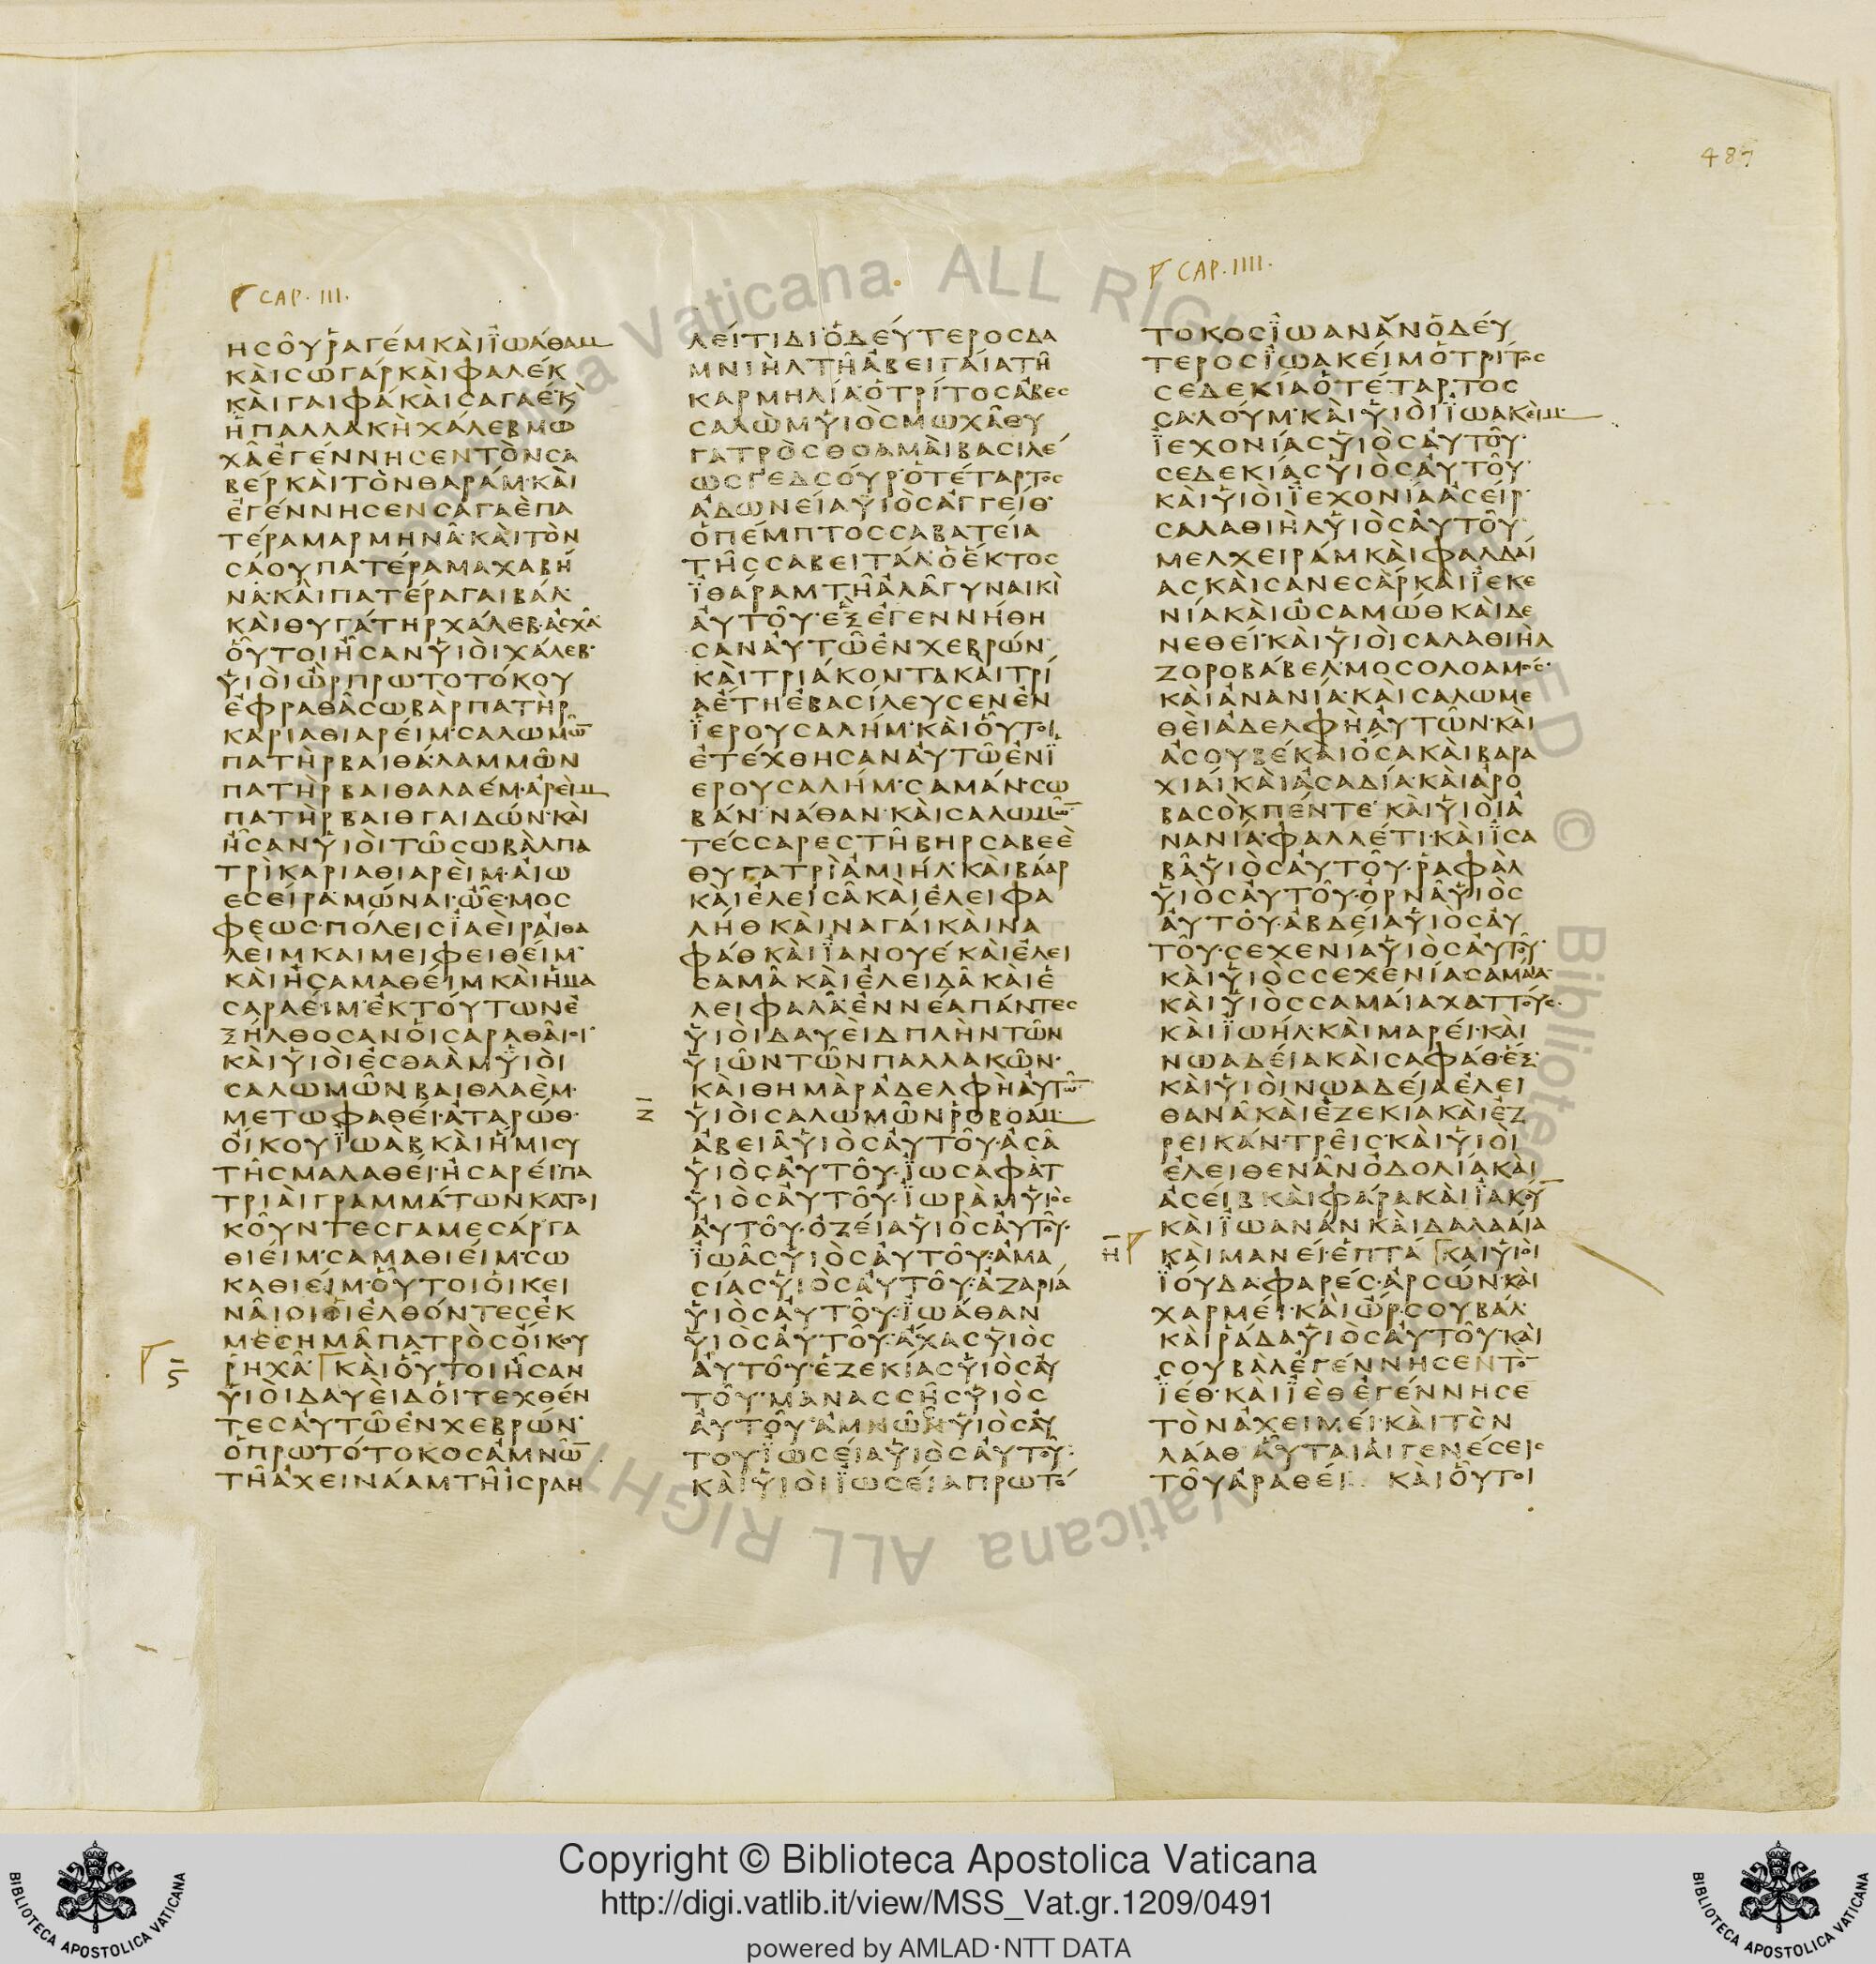 487
CAP. III.
ΗϹΟΥΡΑΓΕΜΚΑΙΪΩΑΘΑΜ
ΚΑΙϹΩΓΑΡΚΑΙΦΑΛΕΚ
ΚΑΙΓΑΙΦΑΚΑΙϹΑΓΑΕΚ
ΗΠΑΛΛΑΚΗΧΑΛΕΒΜΩ
ΧΑΕΓΕΝΝΗϹΕΝΤΟΝϹΑ
ΒΕΡΚΑΙΤΟΝΘΑΡΑΜ·ΚΑΙ
ΕΓΕΝΝΗϹΕΝϹΑΓΑΕΠΑ
ΤΕΡΑΜΑΡΜΗΝΑ·ΚΑΙΤΟΝ
ϹΑΟΥΠΑΤΕΡΑΜΑΧΑΒΗ
ΝΑ·ΚΑΙΠΑΤΕΡΑΓΑΙΒΑΛ·
ΚΑΙΘΥΓΑΤΗΡΧΑΛΕΒ·ΑϹΧΑ
ΟΥΤΟΙΗϹΑΝΥΙΟΙΧΑΛΕΒ·
ΥΙΟΙΩΡΠΡΩΤΟΤΟΚΟΥ
ΕΦΡΑΘΑϹΩΒΑΡΠΑΤΗΡ
ΚΑΡΙΑΘΙΑΡΕΙΜ·ϹΑΛΩΜΩ̅
ΠΑΤΗΡΒΑΙΘΑ·ΛΑΜΜΩΝ
ΠΑΤΗΡΒΑΙΘΑΛΑΕΜ·ΑΡΕΙΜ
ΠΑΤΗΡΒΑΙΘΓΑΙΔΩΝ·ΚΑΙ
ΗϹΑΝΥΙΟΙΤΩϹΩΒΑΛΠΑ
ΤΡΙΚΑΡΙΑΘΙΑΡΕΙΜ·ΑΙΩ
ΕϹΕΙΡΑΜΩΝΑΙ·ΩΕ·ΜΟϹ
ΦΕΩϹ·ΠΟΛΕΙϹΙΑΕΙΡΑΙΘΑ
ΛΕΙΜΚΑΙΜΕΙΦΕΙΘΕΙΜ·
ΚΑΙΗϹΑΜΑΘΕΙΜΚΑΙΗΜΑ
ϹΑΡΑΕΙΜ·ΕΚΤΟΥΤΩΝΕ
ΞΗΛΘΟϹΑΝΟΙϹΑΡΑΘΑΙΟΙ·
ΚΑΙΥΙΟΙΕϹΘΑΑΜΥΙΟΙ
ϹΑΛΩΜΩΝΒΑΙΘΛΑΕΜ·
ΜΕΤΩΦΑΘΕΙ·ΑΤΑΡΩΘ·
ΟΙΚΟΥΪΩΑΒΚΑΙΗΜΙϹΥ
ΤΗϹΜΑΛΑΘΕΙ·ΗϹΑΡΕΙ·ΠΑ
ΤΡΙΑΙΓΡΑΜΜΑΤΩΝΚΑΤΟΙ
ΚΟΥΝΤΕϹΓΑΜΕϹ·ΑΡΓΑ
ΘΙΕΙΜ·ϹΑΜΑΘΙΕΙΜ·ϹΩ
ΚΑΘΙΕΙΜ·ΟΥΤΟΙΟΙΚΕΙ
ΝΑΙΟΙΟΙΕΛΘΟΝΤΕϹΕΚ
ΜΕϹΗΜΑΠΑΤΡΟϹΟΙΚΟΥ
Ϛ̅
ΡΗΧΑ·ΚΑΙΟΥΤΟΙΗϹΑΝ
ΥΙΟΙΔΑΥΕΙΔΟΙΤΕΧΘΕΝ
ΤΕϹΑΥΤΩΕΝΧΕΒΡΩΝ·
ΟΠΡΩΤΟΤΟΚΟϹΑΜΝΩ̅
ΤΗΑΧΕΙΝΑΑΜΤΗΙϹΡΑΗ
ΛΕΙΤΙΔΙ·ΟΔΕΥΤΕΡΟϹΔΑ
ΜΝΙΗΛΤΗΑΒΕΙΓΑΙΑΤΗ
ΚΑΡΜΗΛΙΑ·ΟΤΡΙΤΟϹΑΒΕϹ
ϹΑΛΩΜΥΙΟϹΜΩΧΑΘΥ
ΓΑΤΡΟϹΘΟΑΜΑΙΒΑϹΙΛΕ
ΩϹΓΕΔϹΟΥΡ·ΟΤΕΤΑΡΤΟϹ
ΑΔΩΝΕΙΑΥΙΟϹΑΓΓΕΙΘ·
ΟΠΕΜΠΤΟϹϹΑΒΑΤΕΙΑ
ΤΗϹϹΑΒΕΙΤΑΛ·ΟΕΚΤΟϹ
ΪΘΑΡΑΜΤΗΑΛΑΓΥΝΑΙΚΙ
ΑΥΤΟΥ·ΕΞΕΓΕΝΝΗΘΗ
ϹΑΝΑΥΤΩΕΝΧΕΒΡΩΝ·
ΚΑΙΤΡΙΑΚΟΝΤΑΚΑΙΤΡΙ
ΑΕΤΗΕΒΑϹΙΛΕΥϹΕΝΕΝ
ΪΕΡΟΥϹΑΛΗΜ·ΚΑΙΟΥΤΟΙ
ΕΤΕΧΘΗϹΑΝΑΥΤΩΕΝΪ
ΕΡΟΥϹΑΛΗΜ·ϹΑΜΑΝ·ϹΩ
ΒΑΝ·ΝΑΘΑΝ·ΚΑΙϹΑΛΩΜΩ̅·
ΤΕϹϹΑΡΕϹΤΗΒΗΡϹΑΒΕΕ
ΘΥΓΑΤΡΙΑΜΙΗΛ·ΚΑΙΒΑΑΡ
ΚΑΙΕΛΕΙϹΑΚΑΙΕΛΕΙΦΑ
ΛΗΘΚΑΙΝΑΓΑΙΚΑΙΝΑ
ΦΑΘΚΑΙΪΑΝΟΥΕΚΑΙΕΛΕΙ
ϹΑΜΑΚΑΙΕΛΕΙΔΑΚΑΙΕ
ΛΕΙΦΑΛΑ·ΕΝΝΕΑΠΑΝΤΕϹ
ΥΙΟΙΔΑΥΕΙΔΠΛΗΝΤΩΝ
ΥΙΩΝΤΩΝΠΑΛΛΑΚΩΝ·
ΚΑΙΘΗΜΑΡΑΔΕΛΦΗΑΥΤΩ̅
ΥΙΟΙϹΑΛΩΜΩΝΡΟΒΟΑΜ·
ΑΒΕΙΑΥΙΟϹΑΥΤΟΥ·ΑϹΑ
ΥΙΟϹΑΥΤΟΥ·ΪΩϹΑΦΑΤ
ΥΙΟϹΑΥΤΟΥ·ΪΩΡΑΜΥΙΟϹ
ΑΥΤΟΥ·ΟΖΕΙΑΥΙΟϹΑΥΤΟΥ·
ΪΩΑϹΥΙΟϹΑΥΤΟΥ·ΑΜΑ
ϹΙΑϹΥΙΟϹΑΥΤΟΥ·ΑΖΑΡΙΑ
ΥΙΟϹΑΥΤΟΥ·ΪΩΑΘΑΝ
ΥΙΟϹΑΥΤΟΥ·ΑΧΑϹΥΙΟϹ
ΑΥΤΟΥ·ΕΖΕΚΙΑϹΥΙΟϹΑΥ
ΤΟΥ·ΜΑΝΑϹϹΗϹΥΙΟϹ
ΑΥΤΟΥ·ΑΜΝΩΝΥΙΟϹΑΥ
ΤΟΥΪΩϹΕΙΑΥΙΟϹΑΥΤΟΥ·
ΚΑΙΥΙΟΙΪΩϹΕΙΑΠΡΩΤΟ
CAP. IIII.
ΤΟΚΟϹΪΩΑΝΑΝ·ΟΔΕΥ
ΤΕΡΟϹΪΩΑΚΕΙΜΟΤΡΙΤΟϹ
ϹΕΔΕΚΙΑΟΤΕΤΑΡΤΟϹ
ϹΑΛΟΥΜ·ΚΑΙΥΙΟΙΪΩΑΚΕΙΜ·
ΪΕΧΟΝΙΑϹΥΙΟϹΑΥΤΟΥ·
ϹΕΔΕΚΙΑϹΥΙΟϹΑΥΤΟΥ·
ΚΑΙΥΙΟΙΪΕΧΟΝΙΑΑϹΕΙΡ·
ϹΑΛΑΘΙΗΛΥΙΟϹΑΥΤΟΥ·
ΜΕΛΧΕΙΡΑΜΚΑΙΦΑΛΔΑΙ
ΑϹΚΑΙϹΑΝΕϹΑΡΚΑΙΪΕΚΕ
ΝΙΑΚΑΙΩϹΑΜΩΘΚΑΙΔΕ
ΝΕΘΕΙ·ΚΑΙΥΙΟΙϹΑΛΑΘΙΗΛ
ΖΟΡΟΒΑΒΕΛ·ΜΟϹΟΛΟΑΜΟϹ·
ΚΑΙΑΝΑΝΙΑ·ΚΑΙϹΑΛΩΜΕ
ΘΕΙΑΔΕΛΦΗΑΥΤΩΝ·ΚΑΙ
ΑϹΟΥΒΕΚΑΙΟϹΑΚΑΙΒΑΡΑ
ΧΙΑΙΚΑΙΑϹΑΔΙΑ·ΚΑΙΑΡΟ
ΒΑϹΟΚΠΕΝΤΕ·ΚΑΙΥΙΟΙΑ
ΝΑΝΙΑ·ΦΑΛΛΕΤΙ·ΚΑΙΪϹΑ
ΒΑΥΙΟϹΑΥΤΟΥ·ΡΑΦΑΛ
ΥΙΟϹΑΥΤΟΥ·ΟΡΝΑΥΙΟϹ
ΑΥΤΟΥ·ΑΒΔΕΙΑΥΙΟϹΑΥ
ΤΟΥ·ϹΕΧΕΝΙΑΥΙΟϹΑΥΤΟΥ·
ΚΑΙΥΙΟϹϹΕΧΕΝΙΑ·ϹΑΜΑΙΑ·
ΚΑΙΥΙΟϹϹΑΜΑΙΑΧΑΤΤΟΥϹ·
ΚΑΙΪΩΗΛ·ΚΑΙΜΑΡΕΙ·ΚΑΙ
ΝΩΑΔΕΙΑΚΑΙϹΑΦΑΘ·ΕΞ·
ΚΑΙΥΙΟΙΝΩΑΔΕΙΑΕΛΕΙ
ΘΑΝΑΚΑΙΕΖΕΚΙΑΚΑΙΕΖ
ΡΕΙΚΑΝ·ΤΡΕΙϹ·ΚΑΙΥΙΟΙ
ΕΛΕΙΘΕΝΑΝΟΔΟΛΙΑΚΑΙ
ΑϹΕΙΒΚΑΙΦΑΡΑΚΑΙΪΑΚΟΥ̅
ΚΑΙΪΩΑΝΑΝΚΑΙΔΑΛΑΑΙΑ
Η̅
ΚΑΙΜΑΝΕΙ·ΕΠΤΑΚΑΙΥΙΟΙ
ΪΟΥΔΑ·ΦΑΡΕϹ·ΑΡϹΩΝ·ΚΑΙ
ΧΑΡΜΕΙ·ΚΑΙΩΡ·ϹΟΥΒΑΛ·
ΚΑΙΡΑΔΑΥΙΟϹΑΥΤΟΥ·ΚΑΙ
ϹΟΥΒΑΛΕΓΕΝΝΗϹΕΝΤΟ̅
ΪΕΘ·ΚΑΙΪΕΘΕΓΕΝΝΗϹΕ
ΤΟΝΑΧΕΙΜΕΙ·ΚΑΙΤΟΝ
ΛΑΑΘ·ΑΥΤΑΙΑΙΓΕΝΕϹΕΙϹ
ΤΟΥΑΡΑΘΕΙ· ΚΑΙΟΥΤΟΙ
Copyright © Biblioteca Apostolica Vaticana
http://digi.vatlib.it/view/MSS_Vat.gr.1209/0491
powered by AMLAD·NTT DATA
BIBLIOTECA APOSTOLICA VATICANA
BIBLIOTECA APOSTOLICA VATICANA